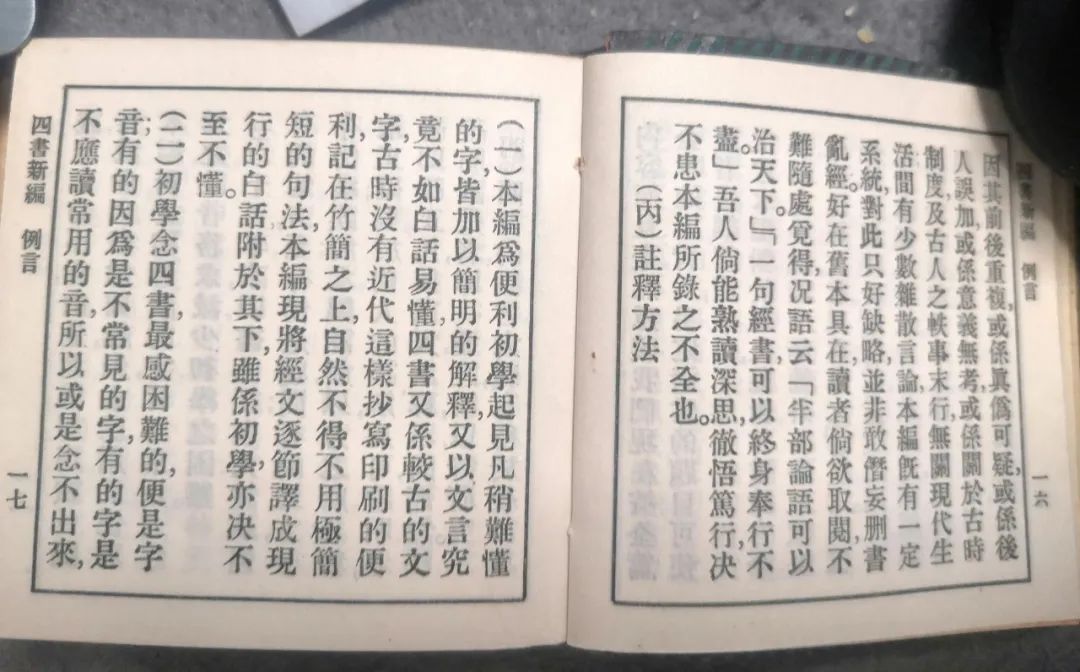 四書新編 例言
一六
因其前後重複,或係眞僞可疑,或係後
人誤加,或係意義無考,或係關於古時
制度,及古人之軼事末行,無關現代生
活間有少數雜散言論,本編旣有一定
系統,對此只好缺略,並非敢僭妄删書
亂經。好在舊本具在,讀者倘欲取閱,不
難隨處覓得,况語云「半部論語可以
治天下。」「一句經書,可以終身奉行不
盡」吾人倘能熟讀深思,徹悟篤行,决
不患本編所錄之不全也。
(丙)註釋方法
(一)本編爲便利初學起見,凡稍難懂
的字,皆加以簡明的解釋,又以文言究
竟不如白話易懂,四書又係較古的文
字,古時沒有近代這樣抄寫印刷的便
利,記在竹簡之上,自然不得不用極簡
短的句法,本編現將經文逐節譯成現
行的白話附於其下,雖係初學,亦决不
至不懂。
(二)初學念四書,最感困難的,便是字
音;有的因爲是不常見的字,有的字是
不應讀常用的音,所以或是念不出來,
四書新編 例言
一七